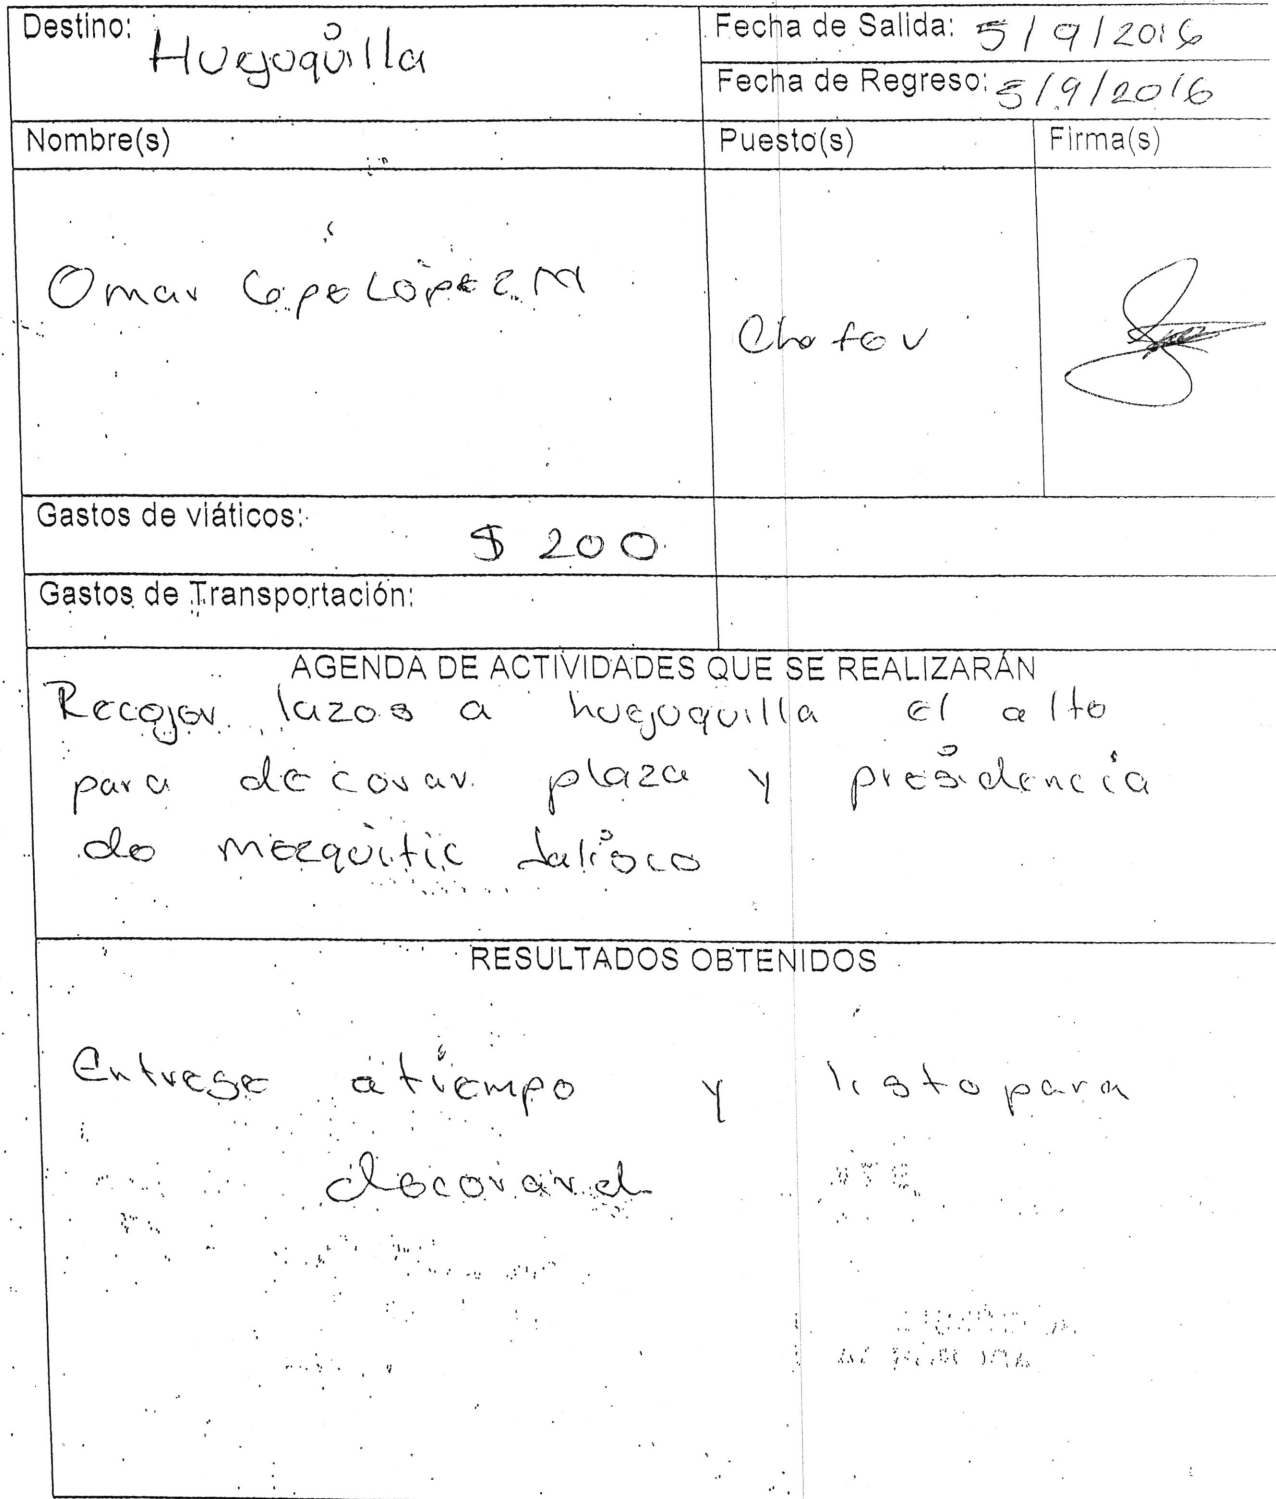 Destino: Huejuquilla
Fecha de Salida: 5/9/2016
Fecha de Regreso: 5/9/2016
Nombre(s) Puesto(s) Firma(s)
Omar Lopez M
Chofer
Gastos de viáticos: $ 200
Gastos de Transportación:
AGENDA DE ACTIVIDADES QUE SE REALIZARÁN
Recojer lazos a huejuquilla el alto
para decorar plaza y presidencia
de mezquitic Jalisco
RESULTADOS OBTENIDOS
Entrege a tiempo y listo para